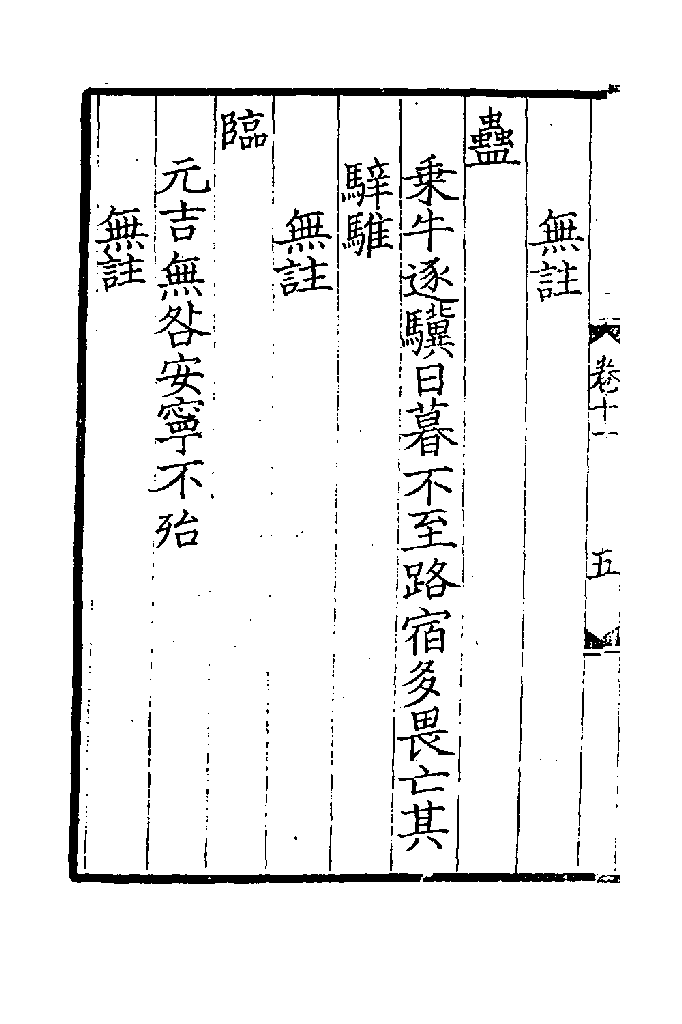 卷十一
五
無註
蠱
乗牛逐驥日暮不至路宿多畏亡其
騂騅
無註
臨
元吉無咎安寧不殆
無註